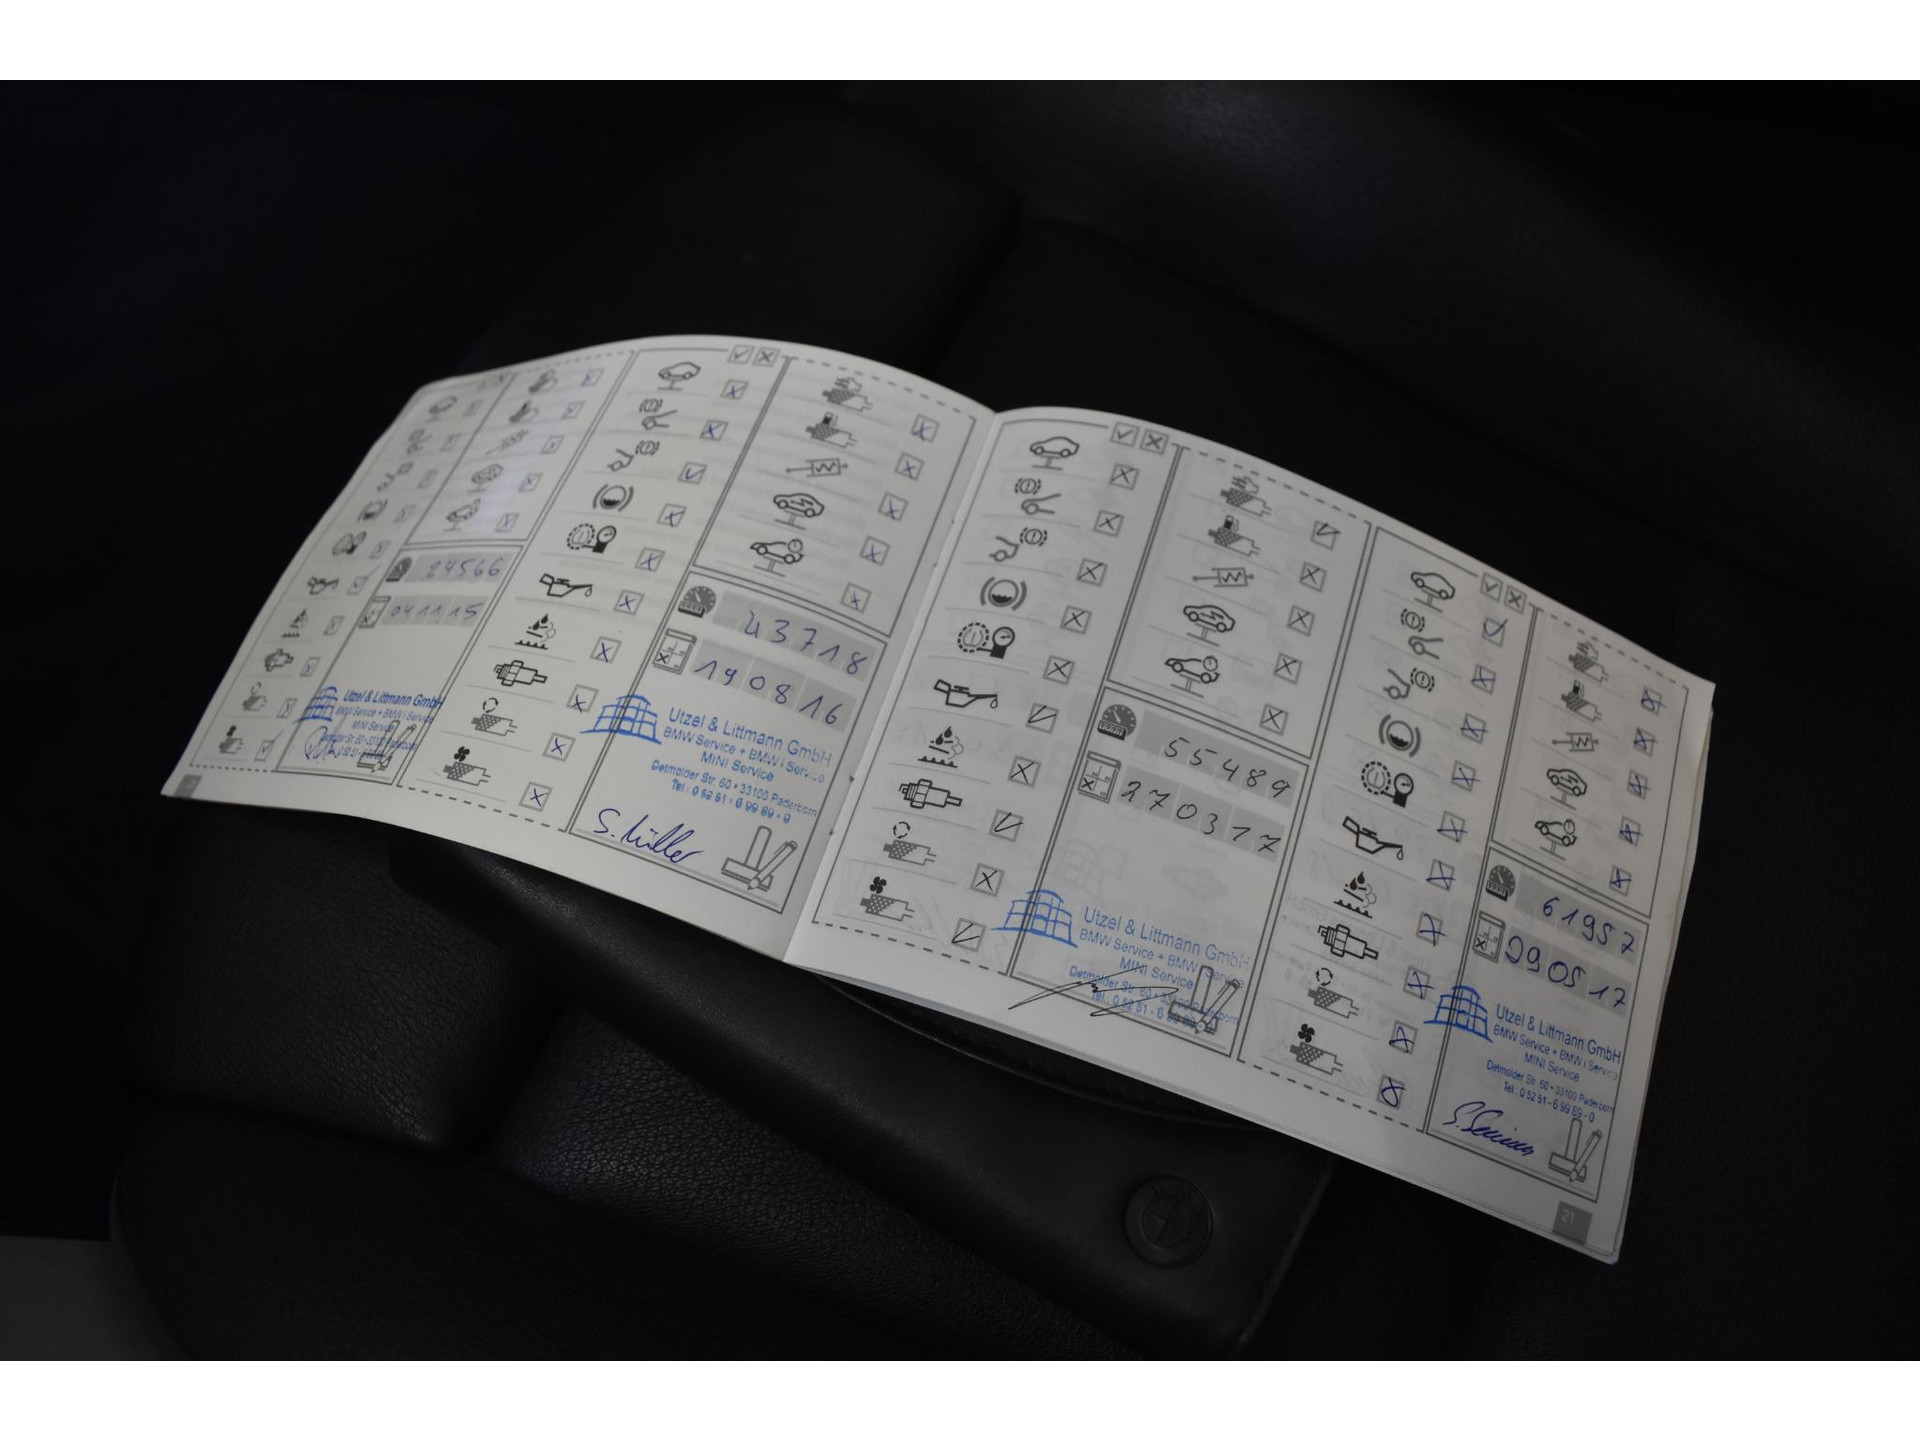 24566
041115
Utzel & Littmann GmbH
BMW Service + BMW i Service
MINI Service
43718
190816
Utzel & Littmann GmbH
BMW Service + BMW i Service
MINI Service
Detmolder Str. 60 • 33100 Paderborn
Tel.: 0 52 51 - 6 99 89 - 0
S. Müller
55489
270317
Utzel & Littmann GmbH
BMW Service + BMW i Service
MINI Service
Detmolder Str. 60 • 33100 Paderborn
Tel.: 0 52 51 - 6 99 89
61957
290517
Utzel & Littmann GmbH
BMW Service + BMW i Service
MINI Service
Detmolder Str. 60 • 33100 Paderborn
Tel.: 0 52 51 - 6 99 89 - 0
21